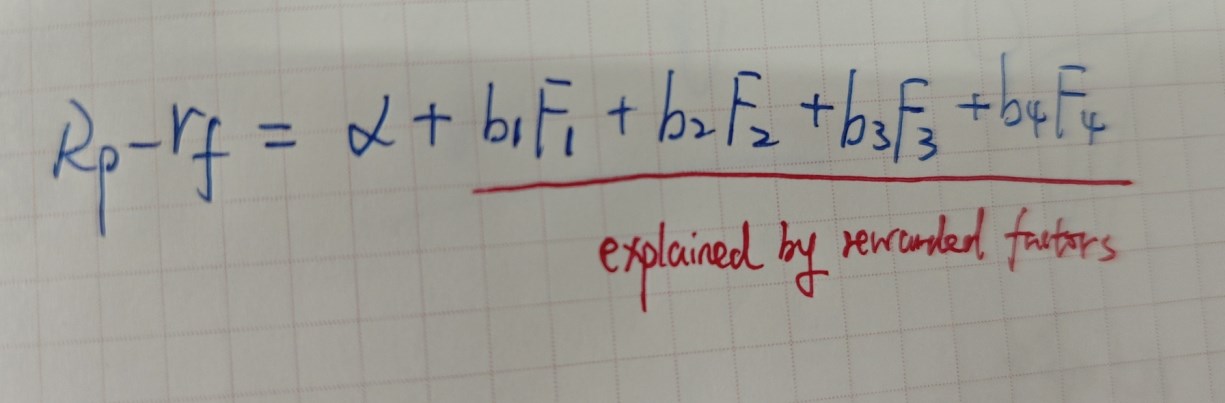 Rp-rf = α + b₁F₁ + b₂F₂ + b₃F₃ + b₄F₄
explained by rewarded factors